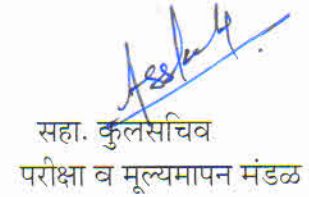 सहा. कुलसचिव
परीक्षा व मूल्यमापन मंडळ